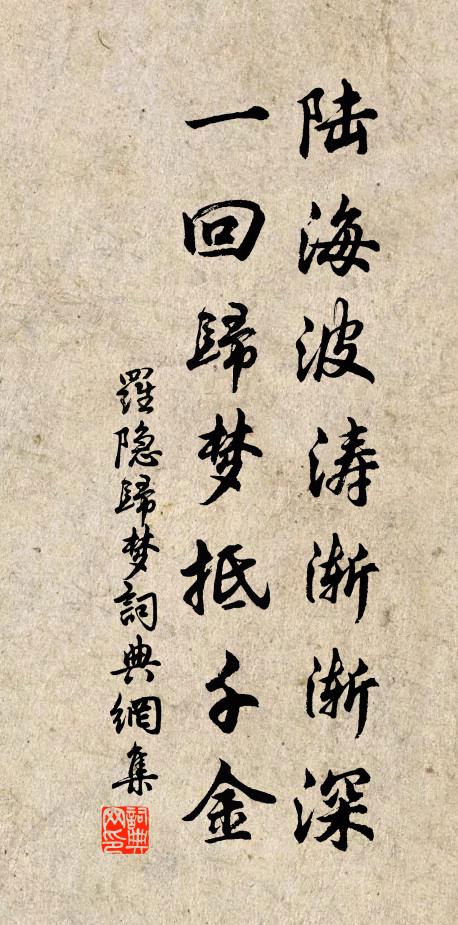 陆海波涛渐渐深
一回歸梦抵千金
羅隐歸梦詞典網集
詞典网印